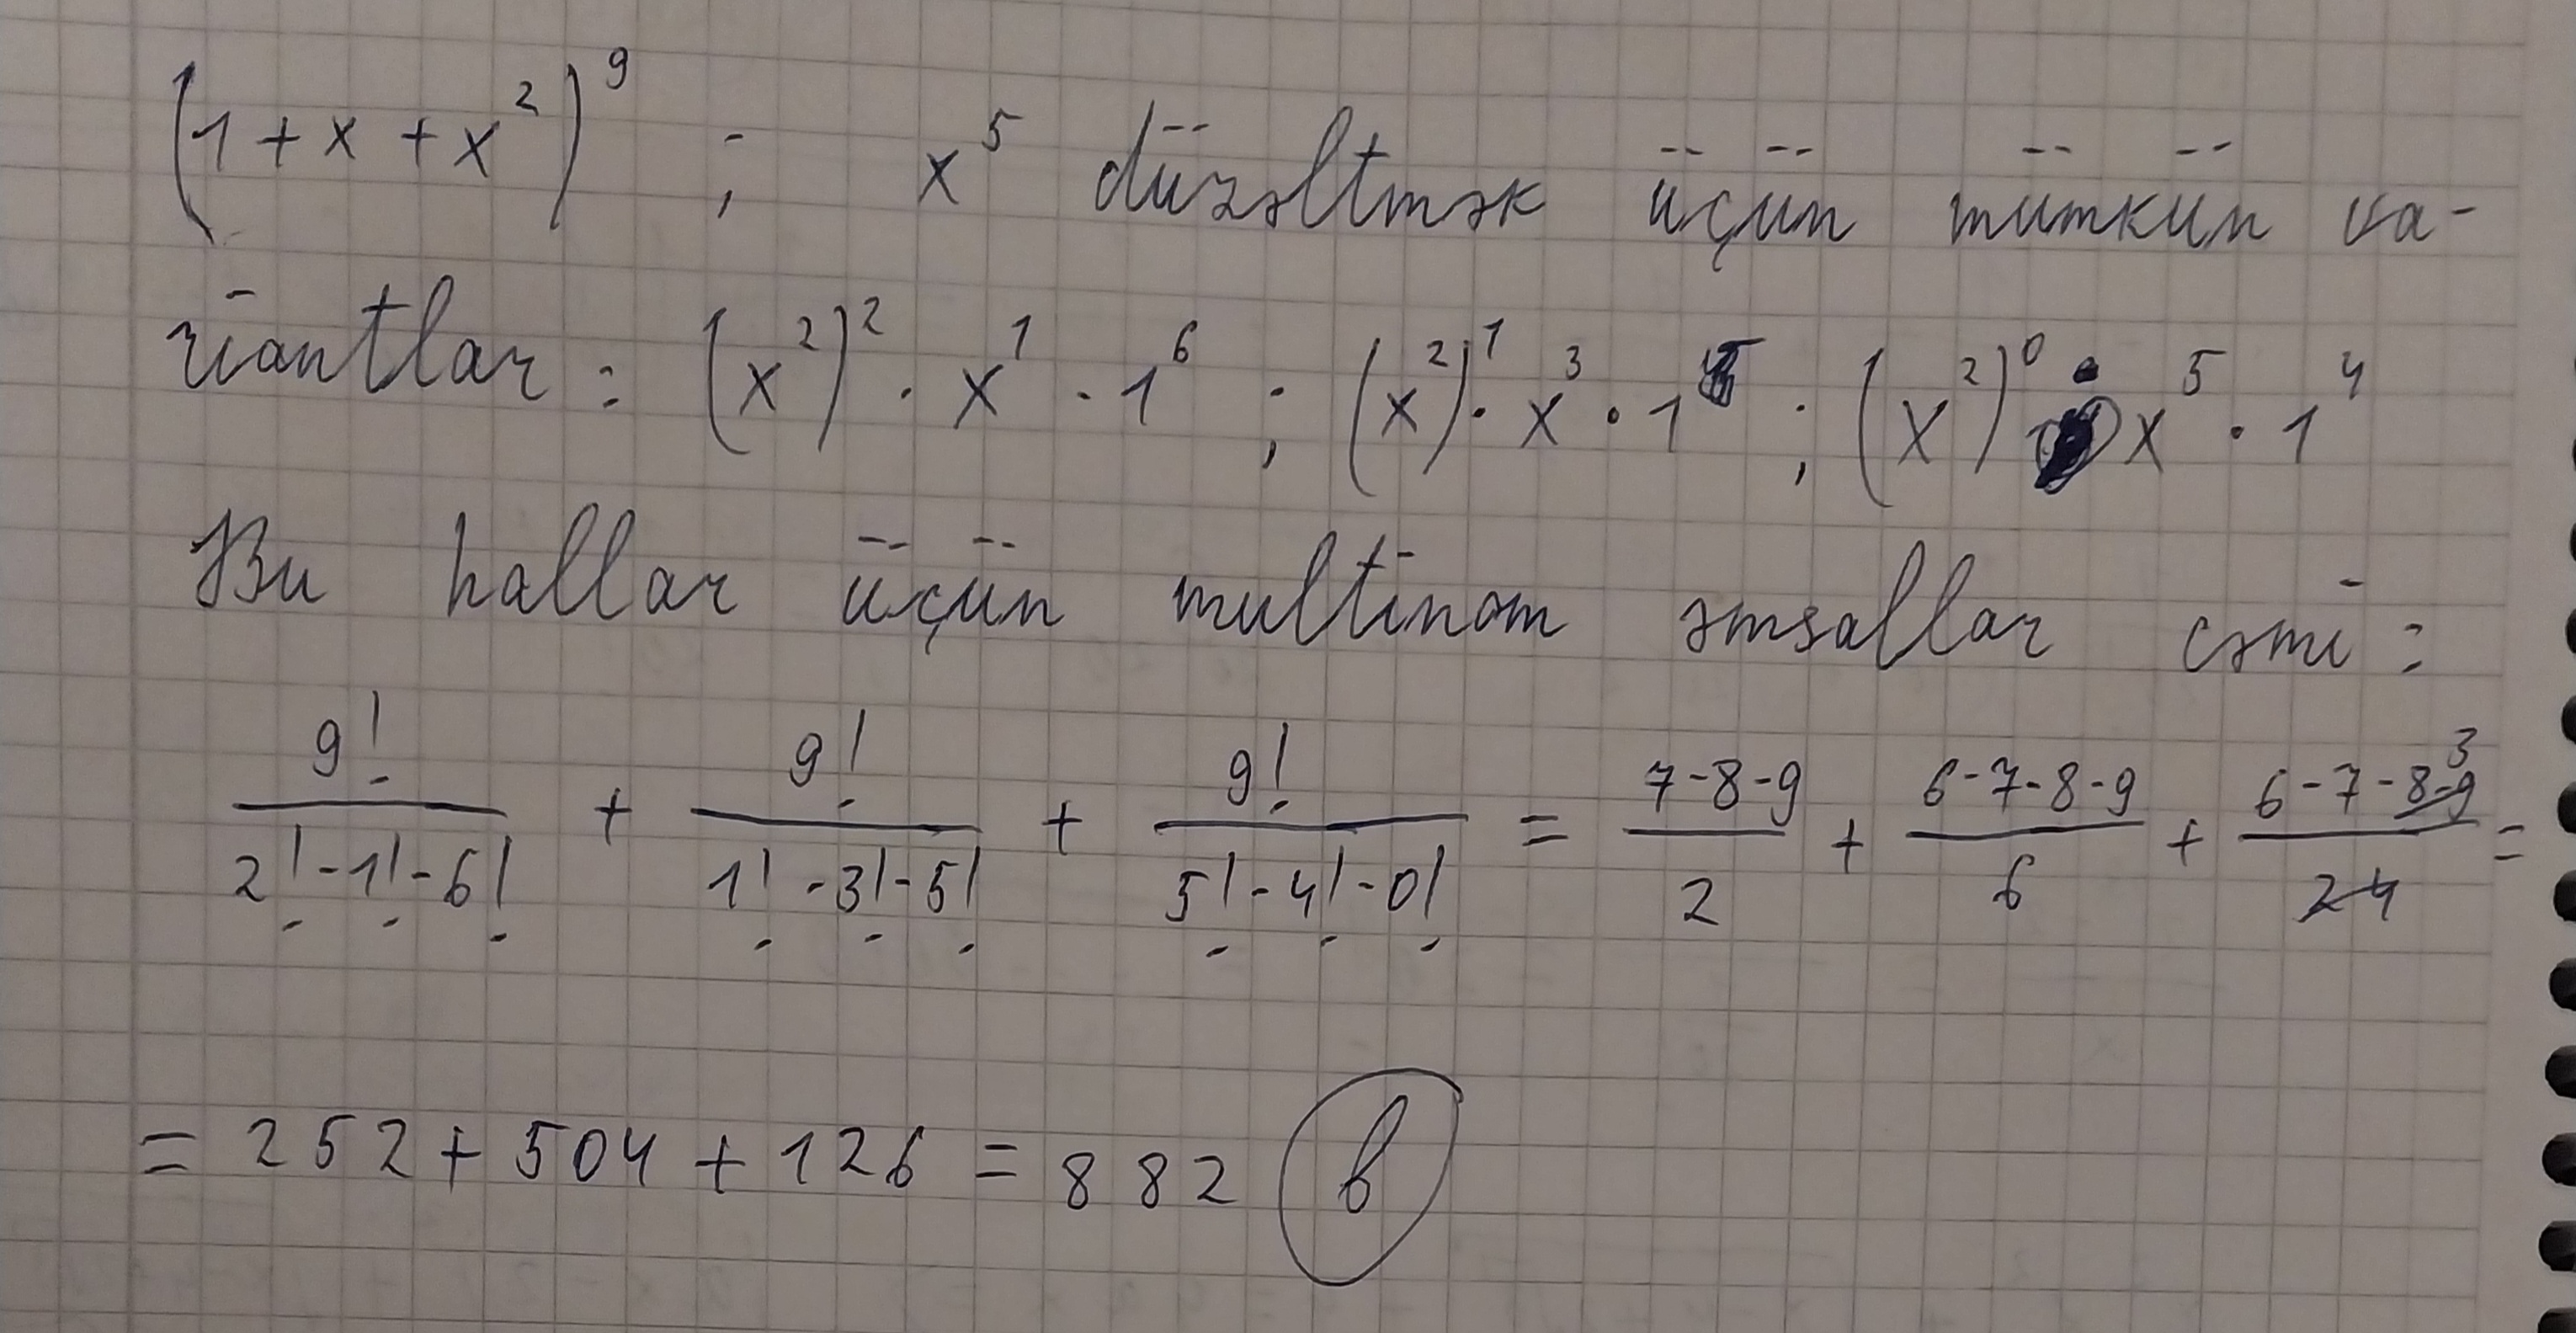 (1 + x + x²)⁹ ; x⁵ düzəltmək üçün mümkün va-
riantlar : (x²)² · x¹ · 1⁶ ; (x²)¹ · x³ · 1⁵ ; (x²)⁰ · x⁵ · 1⁴
Bu hallar üçün multinom əmsallar cəmi :
9!/(2!·1!·6!) + 9!/(1!·3!·5!) + 9!/(5!·4!·0!) = 7·8·9/2 + 6·7·8·9/6 + 6·7·8·9/24 3 =
= 252 + 504 + 126 = 882 b